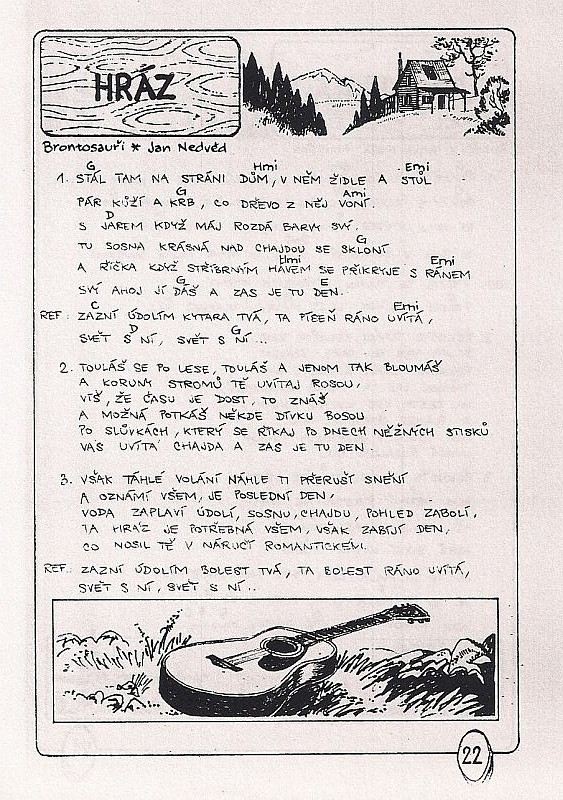 HRÁZ
Brontosauři * Jan Nedvěd
G Hmi Emi
1. STÁL TAM NA STRÁNI DŮM, V NĚM ŽIDLE A STŮL
G Ami
PÁR KŮŽÍ A KRB, CO DŘEVO Z NĚJ VONÍ.
D
S JAREM KDYŽ MÁJ ROZDÁ BARVY SVÝ.
G
TU SOSNA KRÁSNÁ NAD CHAJDOU SE SKLONÍ
Hmi Emi
A ŘÍČKA KDYŽ STŘÍBRNÝM HÁVEM SE PŘIKRYJE S RÁNEM
G E
SVÝ AHOJ JÍ DÁŠ A ZAS JE TU DEN.
C Emi
REF: ZAZNÍ ÚDOLÍM KYTARA TVÁ, TA PÍSEŇ RÁNO UVÍTÁ,
D G
SVĚT S NÍ, SVĚT S NÍ...
2. TOULÁŠ SE PO LESE, TOULÁŠ A JENOM TAK BLOUMÁŠ
A KORUNY STROMŮ TĚ UVÍTAJ ROSOU,
VÍŠ, ŽE ČASU JE DOST, TO ZNÁŠ
A MOŽNÁ POTKÁŠ NĚKDE DÍVKU BOSOU
PO SLŮVKÁCH, KTERÝ SE ŘÍKAJ PO DNECH NĚŽNÝCH STISKŮ
VÁS UVÍTÁ CHAJDA A ZAS JE TU DEN.
3. VŠAK TÁHLÉ VOLÁNÍ NÁHLE TI PŘERUŠÍ SNĚNÍ
A OZNÁMÍ VŠEM, JE POSLEDNÍ DEN,
VODA ZAPLAVÍ ÚDOLÍ, SOSNU, CHAJDU, POHLED ZABOLÍ,
TA HRÁZ JE POTŘEBNÁ VŠEM, VŠAK ZABIJÍ DEN,
CO NOSIL TĚ V NÁRUČÍ ROMANTICKÉM.
REF: ZAZNÍ ÚDOLÍM BOLEST TVÁ, TA BOLEST RÁNO UVÍTÁ,
SVĚT S NÍ, SVĚT S NÍ..
22